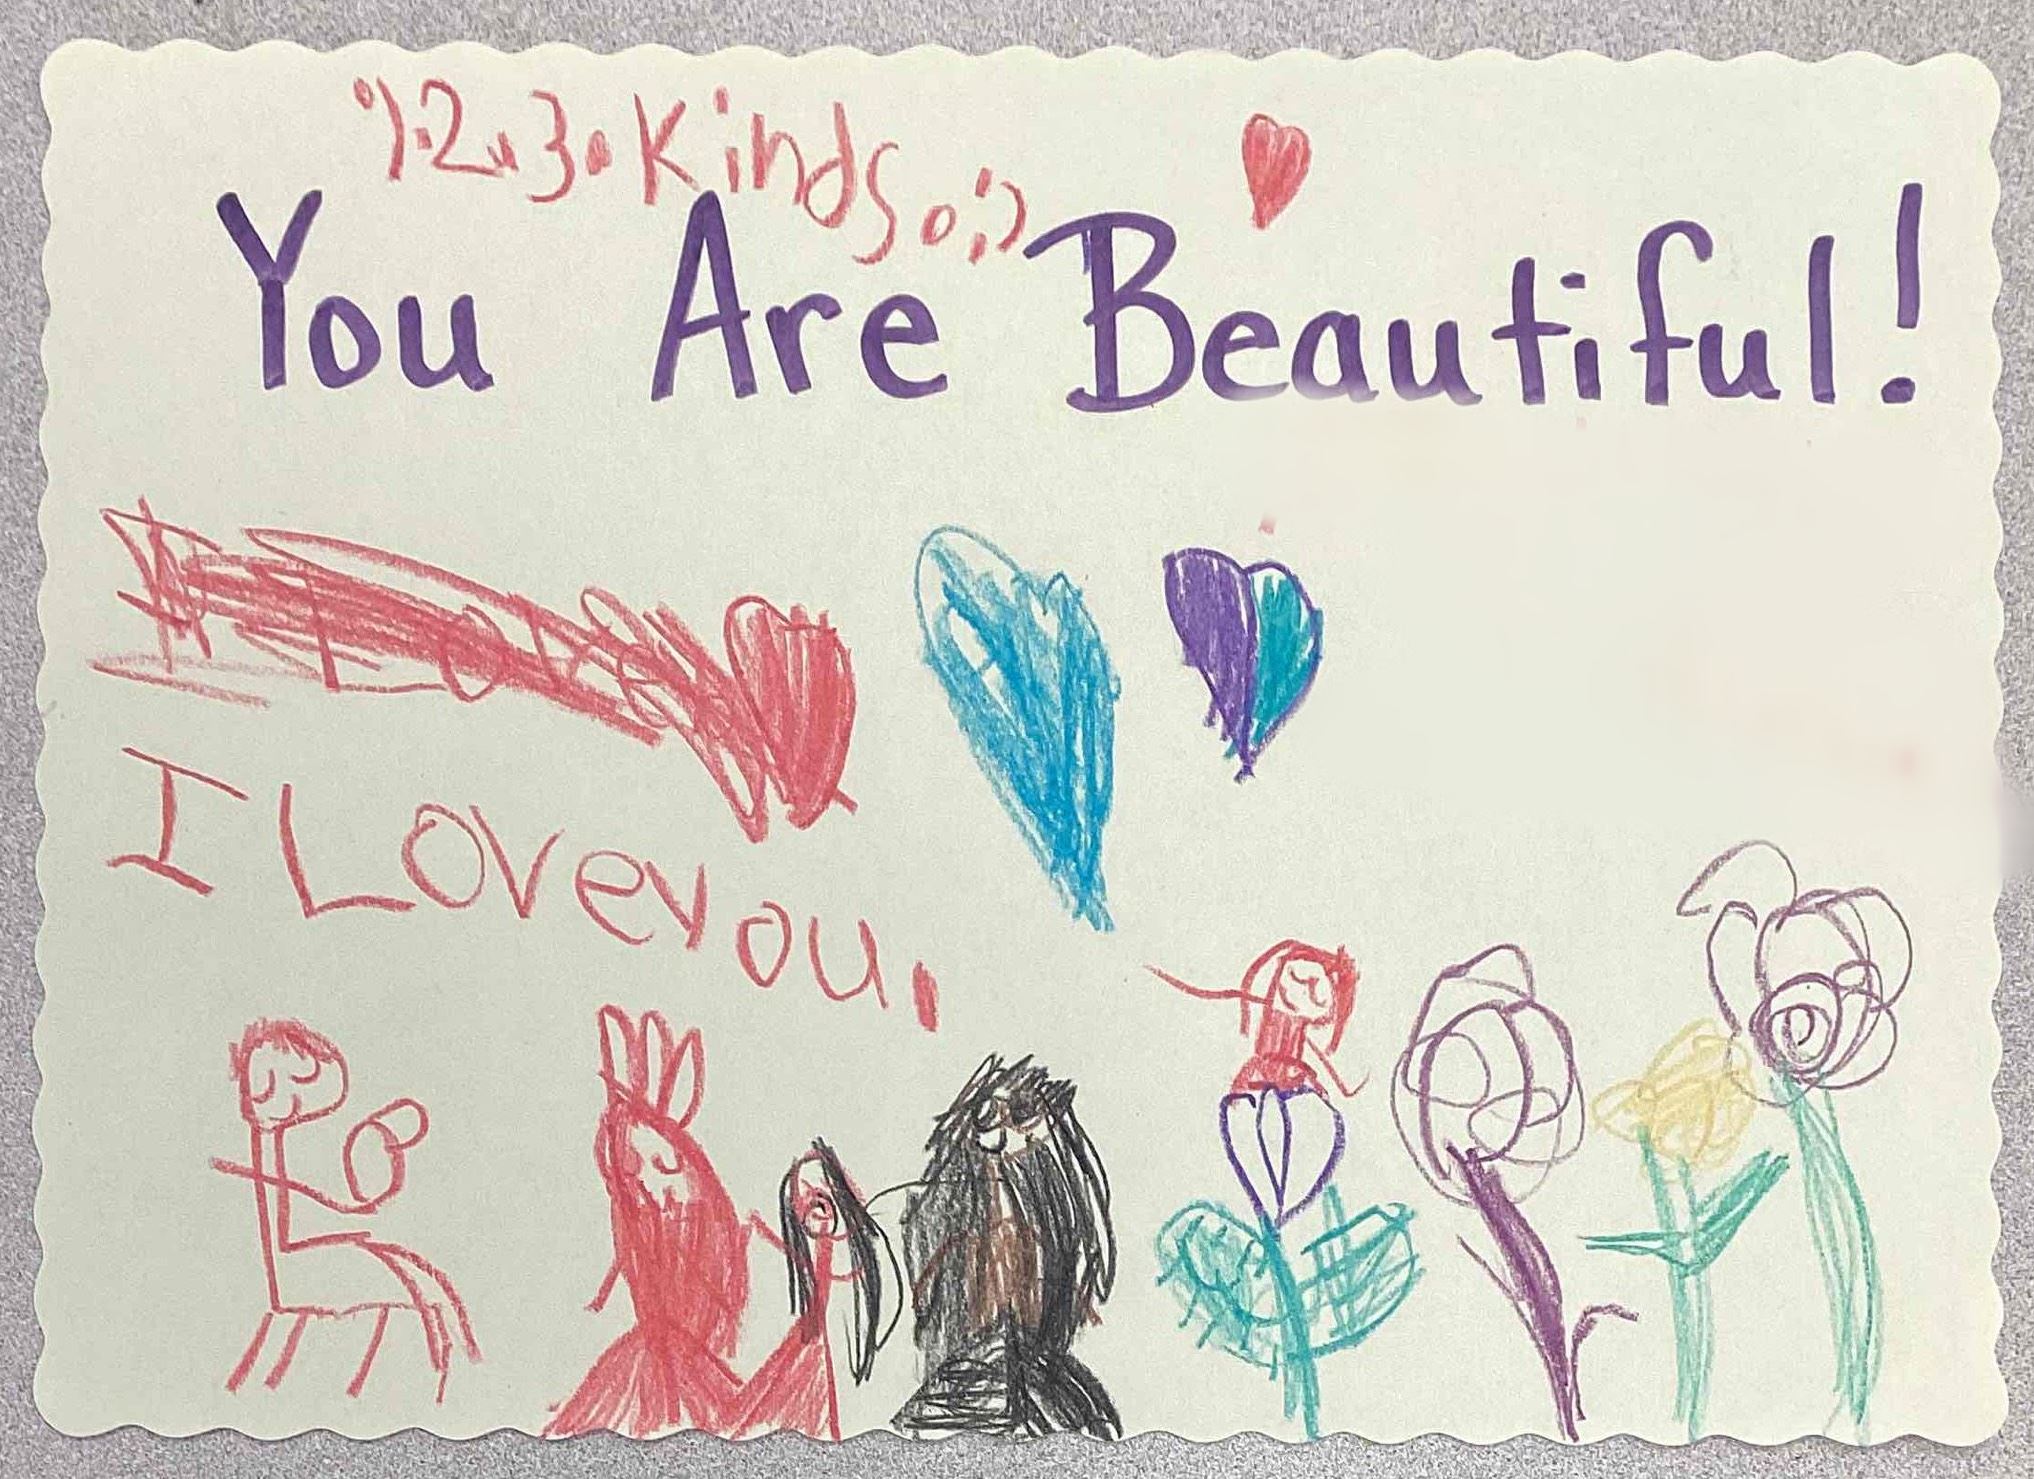 1.2.3.Kinds.:)
You Are Beautiful!
I Loveyou.